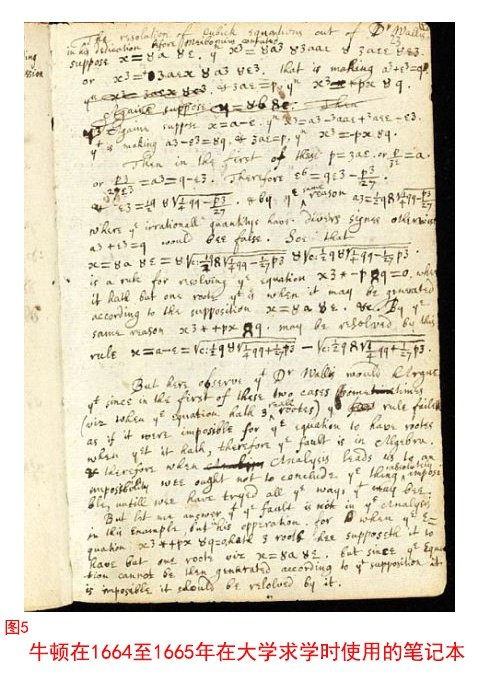 The resolution of Cubick equations out of Dr Wallis
in his dedication before Meibomius confuted.
suppose x=8a 8e. yn x3=8a3 83aae 8 3aee 8e3.
or x3=*3aex 8a3 8e3. that is making a3+e3=q.
& 3aep yn x3 *+px 8q.
Againe suppose
Againe suppose x=a-e. yn x3=a3-3aae+3aee-e3.
yt is making a3-e3=8q. & 3ae=p. yn x3=-px 8q.
Then in the first of these p=3ae. or p/3e=a.
or p3/27e3=a3=q-e3. Therefore e6=qe3-p3/27.
& e3=½q 8√¼qq-p3/27. & by ye same reason a3=½q8√¼qq-p3/27
where ye irrationall quantitys have divers signes otherwise
a3+e3=q would bee false. Soe that
x=8a 8e=8√c:½q8√¼qq-1/27p3 8√c:½q8√¼qq-1/27p3
is a rule for resolving ye equation x3*-p 8q=0. when
it hath but one roote yt is when it may be generated
according to the supposition x=8a 8e. &c. By ye
same reason x3*+px 8q. may be resolved by this
rule x=a-e=√c:½q8√¼qq+1/27p3 - √c:½q8√¼qq+1/27p3.
But here observe yt Dr Wallis would Argue
yt since in the first of these two cases sometimes
(viz when ye equation hath 3 reall rootes) ye rule failes
as if it were impossible for ye equation to have rootes
when yet it hath, therefore ye fault is in Algebra.
& therefore when Analysis leads us to an
impossibility wee ought not to conclude ye thing absolutely impossi
ble, untill wee have tryed all ye ways yt may bee.
But let me answer yt ye fault is not in ye Analysis
in this Example but his opperation. for when ye E=
quation x3*+px 8q=0 hath 3 roots hee supposeth it to
have but one roote viz x=8a 8e. but since ye equa
tion cannot be then generated according to yt supposition it
is impossible it should be resolved by it.
图5
牛顿在1664至1665年在大学求学时使用的笔记本